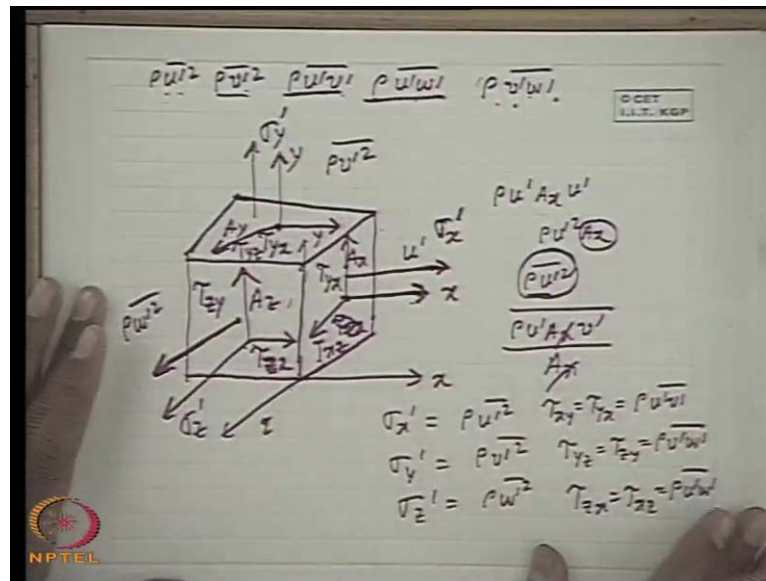 ρu'² ρv'² ρu'v' ρu'w' ρv'w'
© CET
I.I.T. KGP
σy' y ρv'²
Ay τyz τyx y
τyx Ax u' σx'
x
τzy Az
ρw'²
τxz
τzx
σz' z x
ρu' Ax u'
ρu'² Ax
ρu'²
ρu' Ax v'
Ax
σx' = ρu'² τxy = τyx = ρu'v'
σy' = ρv'² τyz = τzy = ρv'w'
σz' = ρw'² τzx = τxz = ρu'w'
NPTEL